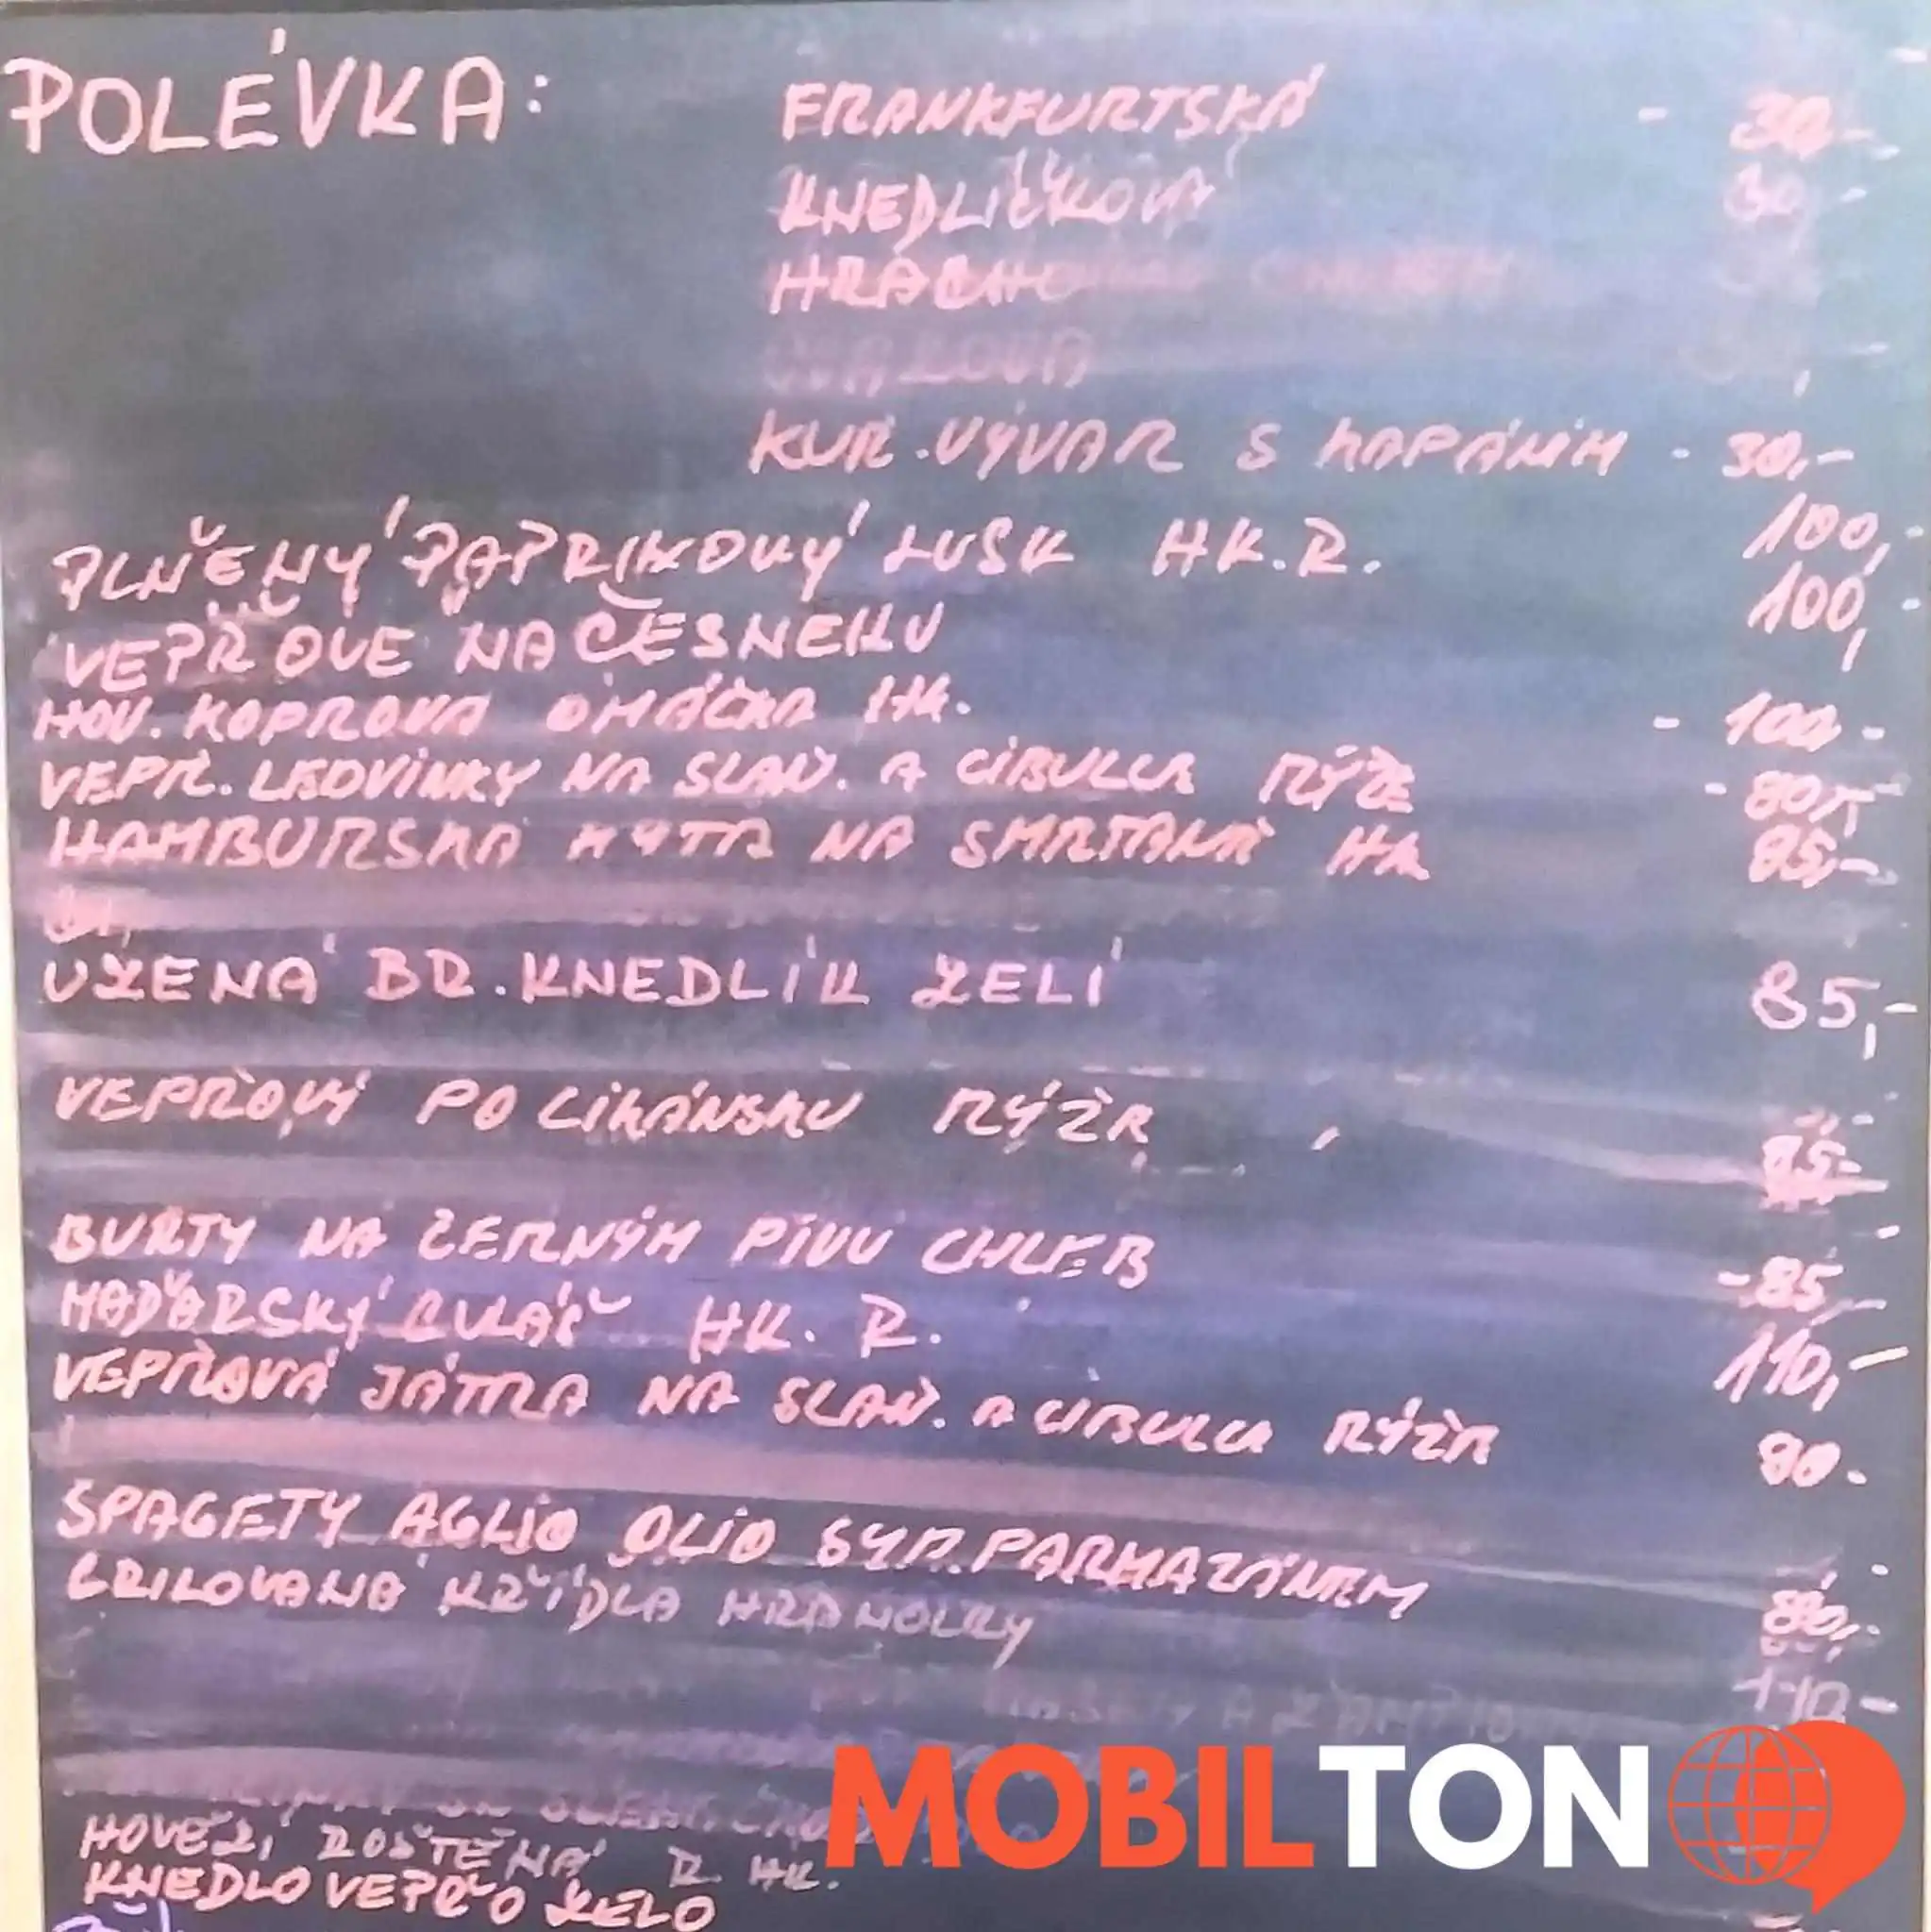 POLÉVKA: FRANKFURTSKÁ - 30,-
KNEDLÍČKOVÁ 30,-
HRACHO
KUŘ. VÝVAR S KAPÁNÍM - 30,-
PLNĚNÝ PAPRIKOVÝ LUSK HK. R. 100,-
VEPŘOVÉ NA ČESNEKU 100,-
HOV. KOPROVÁ OMÁČKA HK. - 100 -
VEPŘ. LEDVINKY NA SLAN. A CIBULCE RÝŽE - 80,-
HAMBURSKÁ KÝTA NA SMETANĚ HK 85,-
UZENÁ BR. KNEDLÍK ZELÍ 85,-
VEPŘOVÝ PO CIKÁNSKU RÝŽE 85,-
BUŘTY NA ČERNÝM PIVU CHLEB - 85,-
MAĎARSKÝ GULÁŠ HK. R. 110,-
VEPŘOVÁ JÁTRA NA SLAN. A CIBULCE RÝŽE
SPAGETY AGLIO OLIO SYP. PARMAZÁNEM 80,-
GRILOVANÁ KŘÍDLA HRANOLKY 110 -
HOVĚZÍ ROŠTĚNÁ R. HK.
KNEDLO VEPŘO ZELO
MOBILTON